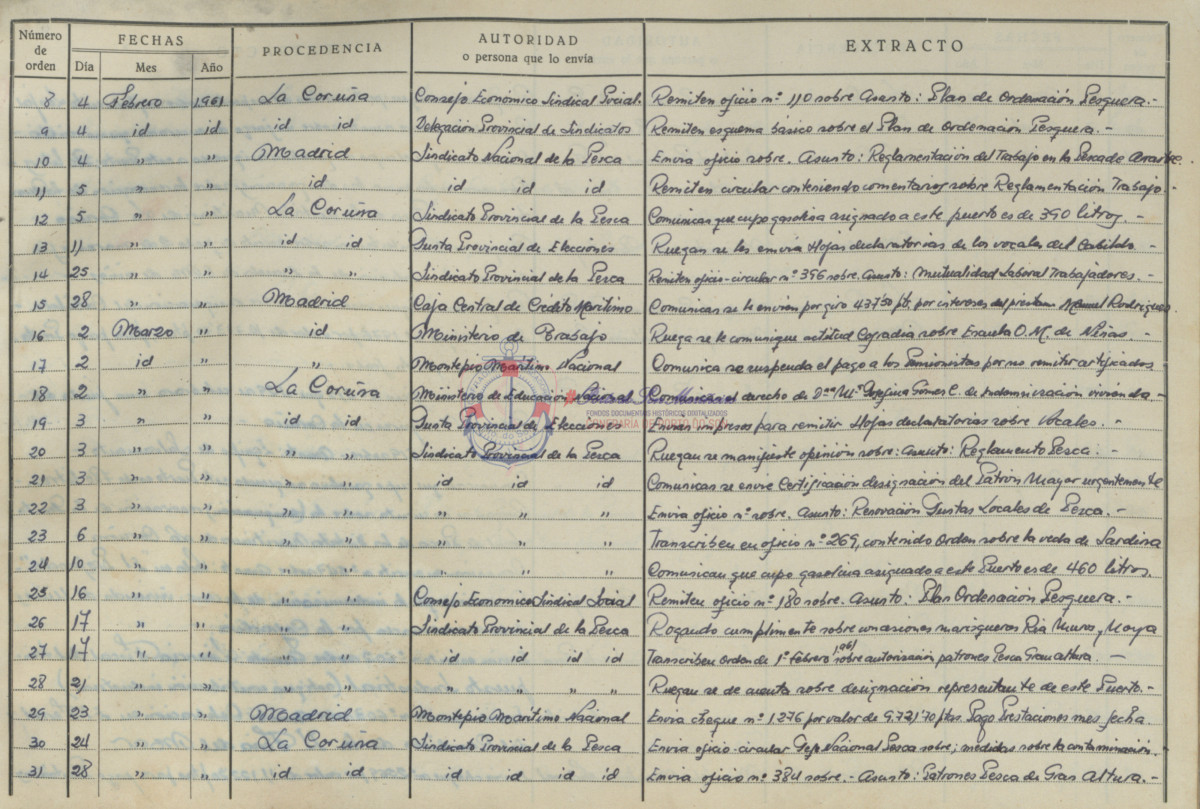 Número de orden FECHAS PROCEDENCIA AUTORIDAD o persona que lo envía EXTRACTO
Día Mes Año
8 4 Febrero 1.961 La Coruña Consejo Económico Sindical Social. Remiten oficio nº 110 sobre Asunto: Plan de Ordenación Pesquera.-
9 4 id id id id Delegación Provincial de Sindicatos Remiten esquema básico sobre el Plan de Ordenación Pesquera.-
10 4 " " Madrid Sindicato Nacional de la Pesca Envia oficio sobre. Asunto: Reglamentación del Trabajo en la Pesca de Arastre.
11 5 " " id id id id Remiten circular conteniendo comentarios sobre Reglamentación Trabajo.
12 5 " " La Coruña Sindicato Provincial de la Pesca Comunican que cupo gasolina asignado a este puerto es de 390 litros.-
13 11 " " id id Junta Provincial de Elecciones Ruegan se les envia Hojas declaratorias de los vocales del Cabildo.-
14 25 " " " " Sindicato Provincial de la Pesca Remiten oficio-circular nº 396 sobre. Asunto: Mutualidad Laboral Trabajadores.-
15 28 " " Madrid Caja Central de Crédito Marítimo Comunican se le envien por giro 437'50 pts. por intereses del prestamo Manuel Rodriguez
16 2 Marzo " id Ministerio de Trabajo Ruega se le comunique actitud Cofradia sobre Escuela O.M. de Niñas.-
17 2 id " " Montepio Marítimo Nacional Comunica se suspenda el pago a los Pensionistas por no remitir certificados.
18 2 " " La Coruña Ministerio de Educación Nacional Comunican el derecho de Josefina Gómez C. de indemnización vivienda.-
19 3 " " id id Junta Provincial de Elecciones Envian impresos para remitir Hojas declaratorias sobre Vocales.-
FONDOS DOCUMENTAIS HISTÓRICOS DIXITALIZADOS
20 3 " " " " Sindicato Provincial de la Pesca Ruegan se manifieste opinión sobre: Asunto: Reglamento Pesca.-
21 3 " " " " id id id Comunican se envie Certificación designación del Patrón Mayor urgentemente
22 3 " " " " " " " Envia oficio nº sobre. Asunto: Renovación Juntas Locales de Pesca.-
23 6 " " " " " " " Transcriben en oficio nº 269, contenido Orden sobre la veda de Sardina
24 10 " " " " " " " Comunican que cupo gasolina asignado a este Puerto es de 460 litros.
25 16 " " " " Consejo Economico Sindical Social Remiten oficio nº 180 sobre. Asunto: Plan Ordenación Pesquera.-
26 17 " " " " Sindicato Provincial de la Pesca Rogando cumplimente sobre concesiones marisqueras Ria Muros y Noya
27 17 " " " " id id id id Transcriben Orden de 1º febrero 1.961 sobre autorización patrones Pesca Gran altura.-
28 21 " " " " " " " " Ruegan se de cuenta sobre designación representante de este Puerto.-
29 23 " " Madrid Montepio Marítimo Nacional Envia cheque nº 1.276 por valor de 9.721'70 ptas. Pago Prestaciones mes fecha.
30 24 " " La Coruña Sindicato Provincial de la Pesca Envia oficio-circular Jefe Nacional Pesca sobre; medidas sobre la contaminación.
31 28 " " id id id id id id Envia oficio nº 384 sobre.- Asunto: Patrones Pesca de Gran Altura.-